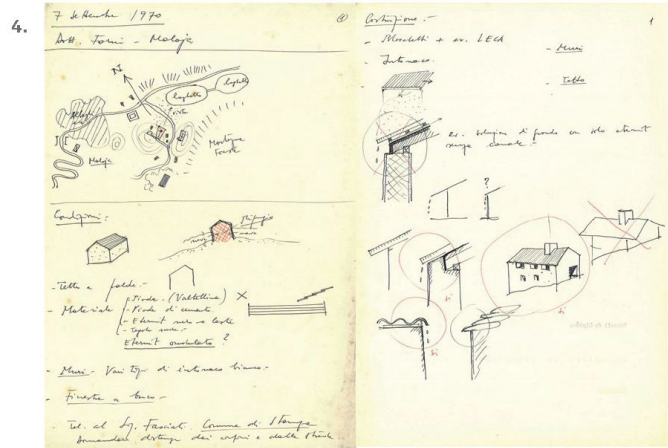 4.
7 settembre 1970
Dott. Forni - Maloja
laghetto
laghetto
Maloja
Montagne
Foreste
Condizioni:
rifugio
- Tetto a falde.-
- Materiale
Piode (Valtellina)
- Piode di cemento
- Eternit nero a lastre
- Tegole
Eternit ondulato ?
- Muri - Vari tipi di intonaco bianco.-
- Finestre a buco.-
- Tel. al Sig. Fasciati. Comune di Stampa
domandare distanze dai confini e dalle strade
Costruzione.-
1
- Blocchetti + ev. LECA
- Intonaco.
- Muri
- Tetto
ev. soluzione di gronda in solo eternit
senza canale.-
?
si
si
si